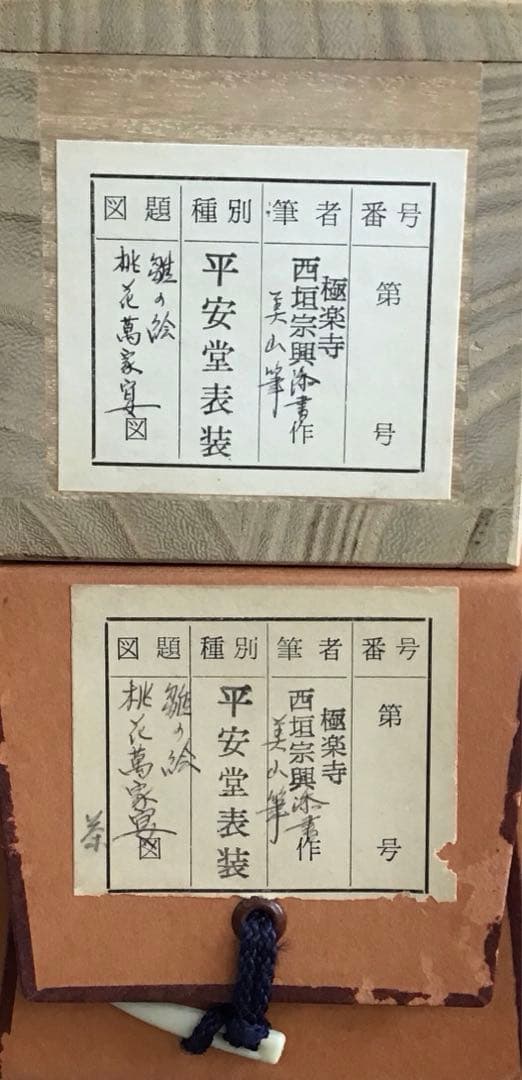 番号
第　号
筆者
極楽寺
西垣宗興添書作
美山筆
種別
平安堂表装
図題
雛の絵
桃花萬家宴図
番号
第　号
筆者
極楽寺
西垣宗興添書作
美山筆
種別
平安堂表装
図題
雛の絵
桃花萬家宴図
茶